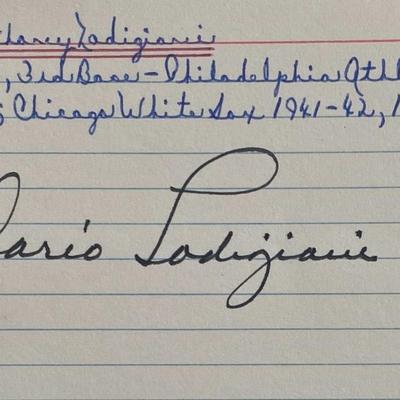 Lodigiani
, 3rd Base - Philadelphia Athl
; Chicago White Sox 1941-42, 1
ario Lodigiani